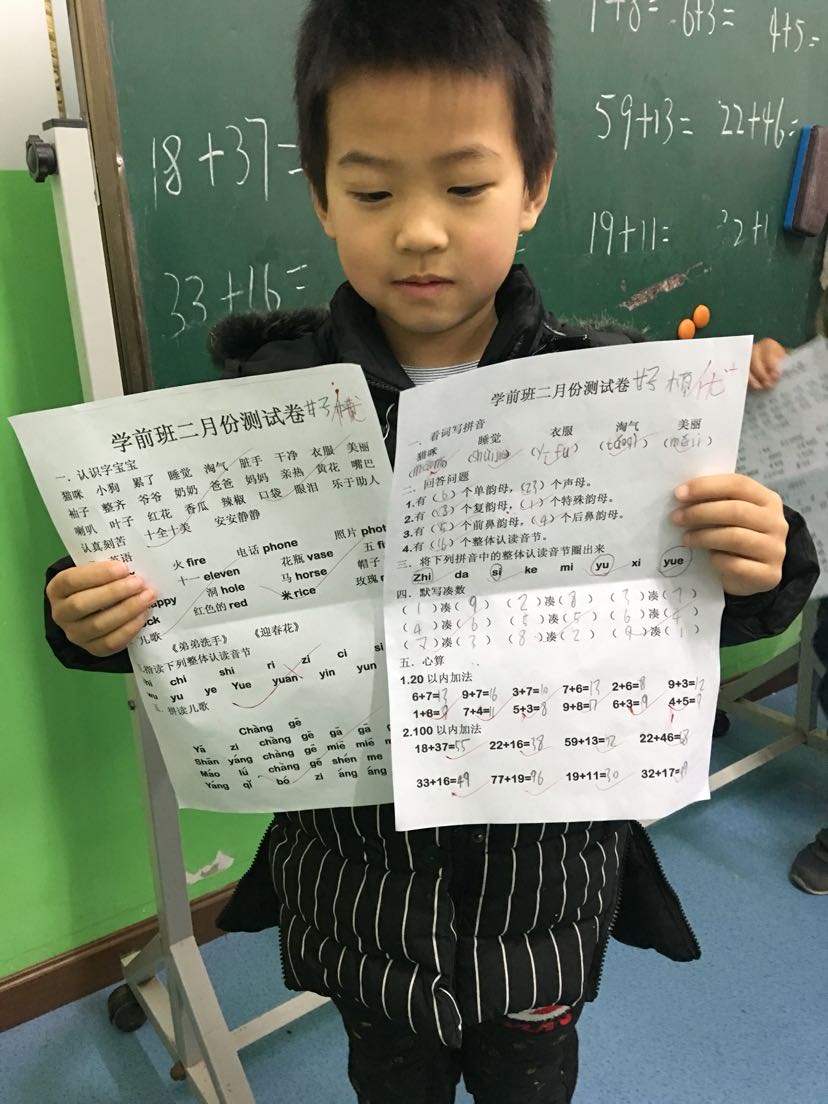 1+8= 6+3= 4+5=
18+37= 59+13= 22+46=
19+11= 32+1
33+16=
学前班二月份测试卷
一、认识字宝宝
猫咪 小狗 累了 睡觉 淘气 脏手 干净 衣服 美丽
袖子 整齐 爷爷 奶奶 爸爸 妈妈 亲热 黄花 嘴巴
喇叭 叶子 红花 香瓜 辣椒 口袋 眼泪 乐于助人
认真刻苦 十全十美 安安静静
英语
火 fire 电话 phone 照片 phot
十一 eleven 花瓶 vase 五 fi
happy 洞 hole 马 horse 帽子
ck 红色的 red 米 rice 玫瑰
儿歌 《弟弟洗手》 《迎春花》
指读下列整体认读音节
hi chi shi ri zi ci si
wu yu ye Yue yuan yin yun
拼读儿歌
Chàng gē
Yā zi chàng gē gā gā g
Shān yáng chàng gē miē miē m
Māo lú chàng gē shén me
Yáng qǐ bó zi áng áng
学前班二月份测试卷 优
一、看词写拼音
猫咪 睡觉 衣服 淘气 美丽
二、回答问题
1.有(6)个单韵母,(23)个声母。
2.有( )个复韵母,(1)个特殊韵母。
3.有(5)个前鼻韵母,(4)个后鼻韵母。
4.有(16)个整体认读音节。
三、将下列拼音中的整体认读音节圈出来
Zhi da si ke mi yu xi yue
四、默写凑数
(1)凑(9) (2)凑(8) (3)凑(7)
(4)凑(6) (5)凑(5) (6)凑(4)
(7)凑(3) (8)凑(2) (9)凑(1)
五、心算
1.20 以内加法
6+7=13 9+7=16 3+7=10 7+6=13 2+6=8 9+3=12
1+8=9 7+4=11 5+3=8 9+8=17 6+3=9 4+5=9
2.100 以内加法
18+37=55 22+16=38 59+13=72 22+46=68
33+16=49 77+19=96 19+11=30 32+17=